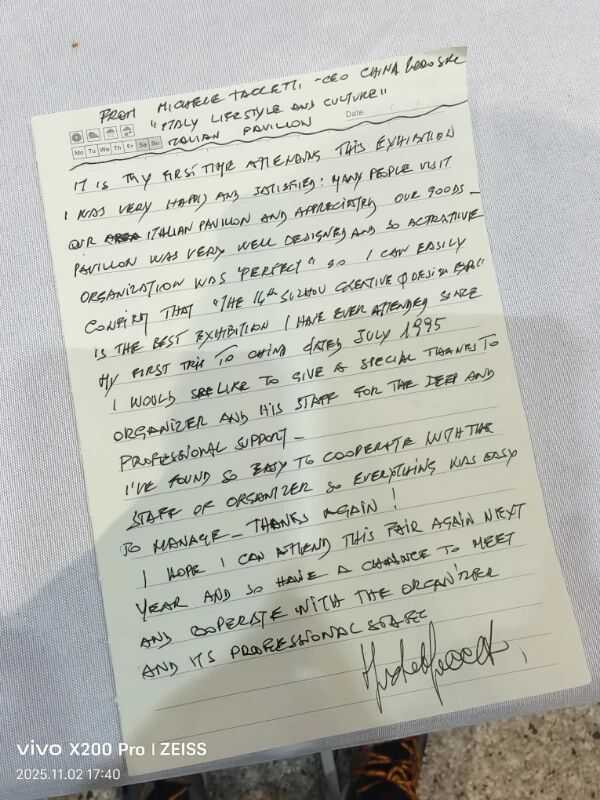 FROM MICHELE TACCETTI - CEO CHINA
"ITALY LIFESTYLE AND CULTURE"
ITALIAN PAVILLON
Date.
Mo Tu We Th Fr Sa Su
IT IS MY FIRST TIME ATTENDING THIS EXHIBITION
I WAS VERY HAPPY AND SATISFIED: MANY PEOPLE VISIT
OUR ITALIAN PAVILLON AND APPRECIATING OUR GOODS -
PAVILLON WAS VERY WELL DESIGNED AND SO ACTRATIVE
ORGANIZATION WAS "PERFECT" SO I CAN EASILY
CONFIRM THAT "THE 14th SUZHOU CREATIVE & DESIGN EXPO"
IS THE BEST EXHIBITION I HAVE EVER ATTENDED SINCE
MY FIRST TRIP TO CHINA DATED JULY 1995
I WOULD LIKE TO GIVE A SPECIAL THANKS TO
ORGANIZER AND HIS STAFF FOR THE DEEP AND
PROFESSIONAL SUPPORT -
I'VE FOUND SO EASY TO COOPERATE WITH THE
STAFF OF ORGANIZER SO EVERYTHING WAS EASY
TO MANAGE - THANKS AGAIN !
I HOPE I CAN ATTEND THIS FAIR AGAIN NEXT
YEAR AND SO HAVE A CHANCE TO MEET
AND COOPERATE WITH THE ORGANIZER
AND ITS PROFESSIONAL STAFF
vivo X200 Pro | ZEISS
2025.11.02 17:40